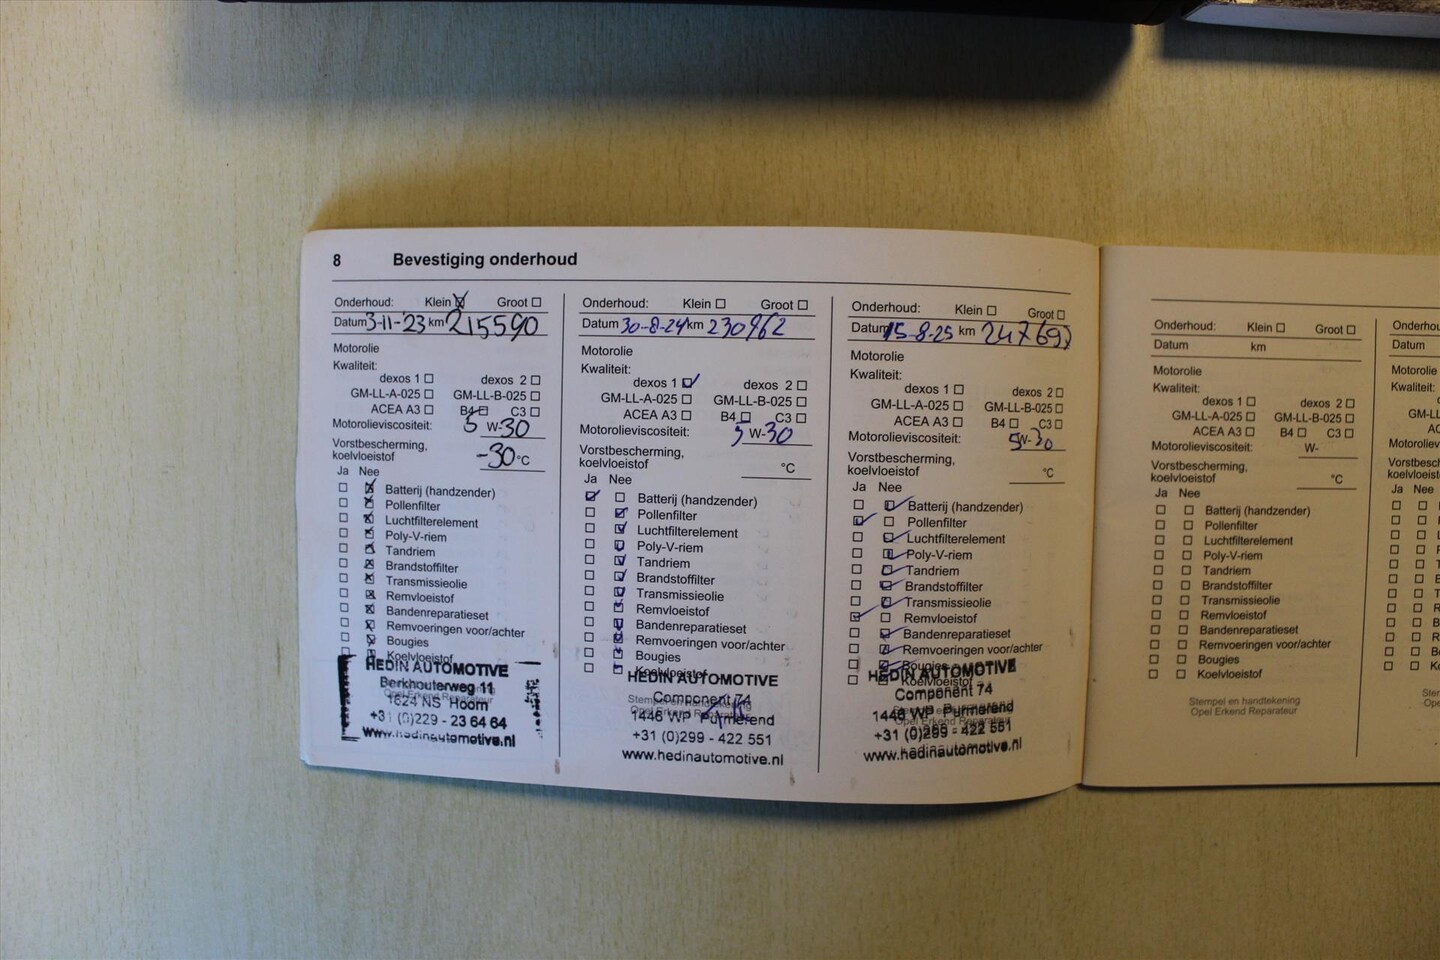 8 Bevestiging onderhoud
Onderhoud: Klein Groot
Datum 3-11-23 km 215590
Motorolie
Kwaliteit:
dexos 1 dexos 2
GM-LL-A-025 GM-LL-B-025
ACEA A3 B4 C3
Motorolieviscositeit: 5 W-30
Vorstbescherming,
koelvloeistof -30 °C
Ja Nee
Batterij (handzender)
Pollenfilter
Luchtfilterelement
Poly-V-riem
Tandriem
Brandstoffilter
Transmissieolie
Remvloeistof
Bandenreparatieset
Remvoeringen voor/achter
Bougies
Koelvloeistof
HEDIN AUTOMOTIVE
Berkhouterweg 11
1624 NS Hoorn
Opel Erkend Reparateur
+31 (0)229 - 23 64 64
www.hedinautomotive.nl
Onderhoud: Klein Groot
Datum 30-8-24 km 230962
Motorolie
Kwaliteit:
dexos 1 dexos 2
GM-LL-A-025 GM-LL-B-025
ACEA A3 B4 C3
Motorolieviscositeit: 5 W-30
Vorstbescherming,
koelvloeistof °C
Ja Nee
Batterij (handzender)
Pollenfilter
Luchtfilterelement
Poly-V-riem
Tandriem
Brandstoffilter
Transmissieolie
Remvloeistof
Bandenreparatieset
Remvoeringen voor/achter
Bougies
Koelvloeistof
HEDIN AUTOMOTIVE
Component 74
Stempel en handtekening
Opel Erkend Reparateur
1446 WP Purmerend
+31 (0)299 - 422 551
www.hedinautomotive.nl
Onderhoud: Klein Groot
Datum 15-8-25 km
Motorolie
Kwaliteit:
dexos 1 dexos 2
GM-LL-A-025 GM-LL-B-025
ACEA A3 B4 C3
Motorolieviscositeit: 5W-30
Vorstbescherming,
koelvloeistof °C
Ja Nee
Batterij (handzender)
Pollenfilter
Luchtfilterelement
Poly-V-riem
Tandriem
Brandstoffilter
Transmissieolie
Remvloeistof
Bandenreparatieset
Remvoeringen voor/achter
Bougies
Koelvloeistof
HEDIN AUTOMOTIVE
Component 74
1446 WP Purmerend
Opel Erkend Reparateur
+31 (0)299 - 422 551
www.hedinautomotive.nl
Onderhoud: Klein Groot
Datum km
Motorolie
Kwaliteit:
dexos 1 dexos 2
GM-LL-A-025 GM-LL-B-025
ACEA A3 B4 C3
Motorolieviscositeit: W-
Vorstbescherming,
koelvloeistof °C
Ja Nee
Batterij (handzender)
Pollenfilter
Luchtfilterelement
Poly-V-riem
Tandriem
Brandstoffilter
Transmissieolie
Remvloeistof
Bandenreparatieset
Remvoeringen voor/achter
Bougies
Koelvloeistof
Stempel en handtekening
Opel Erkend Reparateur
Datum
Motorolie
Ja Nee